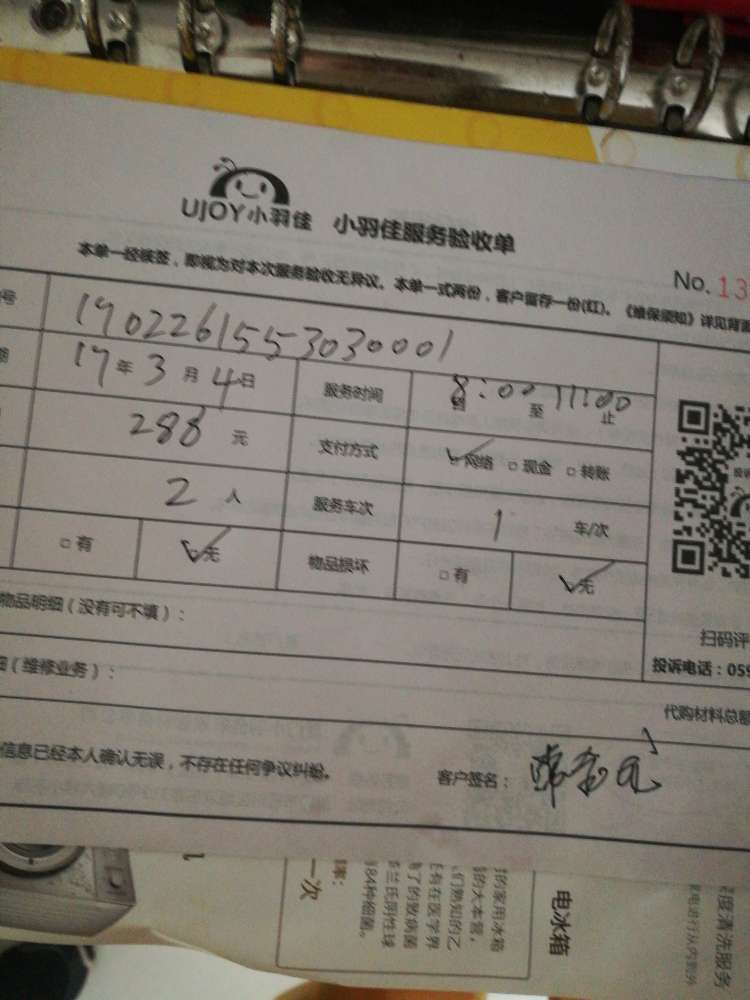 UJOY小羽佳 小羽佳服务验收单
本单一经核签，即视为对本次服务验收无异议。本单一式两份，客户留存一份(红)。《维保须知》详见背面
No. 13
号 1902261553030001
期 19年3月4日 服务时间 8:00 至 11:00 止
288 元 支付方式 网络 现金 转账
2 人 服务车次 1 车/次
有 无 物品损坏 有 无
物品明细（没有可不填）：
扫码评
细（维修业务）：
投诉电话：059
代购材料总额
信息已经本人确认无误，不存在任何争议纠纷。 客户签名：
一次
电冰箱
的家用冰箱
的大本营，
84种细菌。
度清洗服务